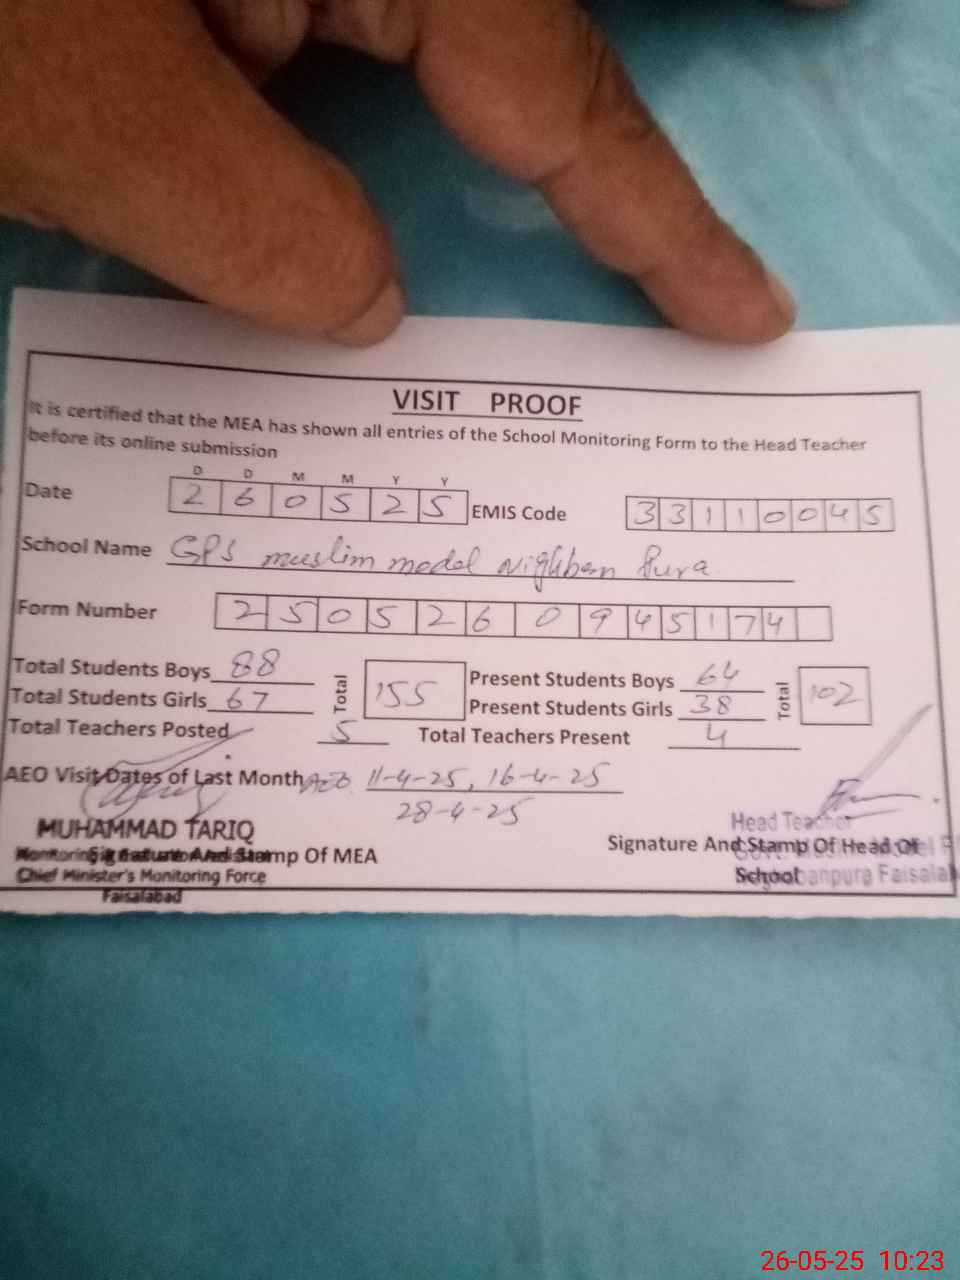 VISIT PROOF
It is certified that the MEA has shown all entries of the School Monitoring Form to the Head Teacher
before its online submission
D D M M Y Y
Date 2 6 0 5 2 5 EMIS Code 3 3 1 1 0 0 4 5
School Name GPS muslim model Nighban Pura
Form Number 2 5 0 5 2 6 0 9 4 5 1 7 4
Total Students Boys 88 Total 155 Present Students Boys 64 Total 102
Total Students Girls 67 Present Students Girls 38
Total Teachers Posted 5 Total Teachers Present 4
AEO Visit Dates of Last Month AEO 11-4-25, 16-4-25
28-4-25
MUHAMMAD TARIQ
Head Teacher
Signature And Stamp Of MEA
Signature And Stamp Of Head Of
School
Chief Minister's Monitoring Force
Faisalabad
26-05-25 10:23